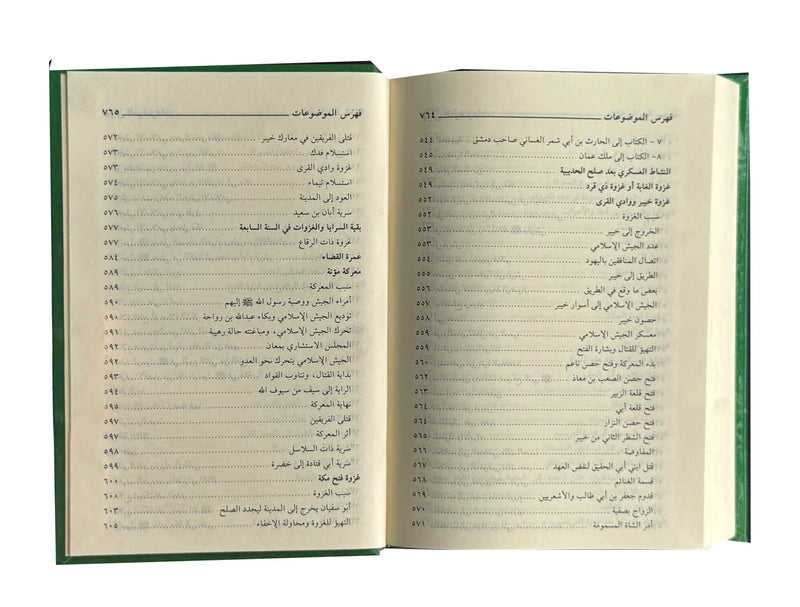 ٧٦٤ فهرس الموضوعات
٧ - الكتاب إلى الحارث بن أبي شمر الغساني صاحب دمشق ٥٤٤
٨- الكتاب إلى ملك عمان ٥٤٥
النشاط العسكري بعد صلح الحديبية ٥٤٩
غزوة الغابة أو غزوة ذي قرد ٥٤٩
غزوة خيبر ووادي القرى ٥٥٢
سبب الغزوة ٥٥٢
الخروج إلى خيبر ٥٥٣
عدد الجيش الإسلامي ٥٥٣
اتصال المنافقين باليهود ٥٥٤
الطريق إلى خيبر ٥٥٥
بعض ما وقع في الطريق ٥٥٦
الجيش الإسلامي إلى أسوار خيبر ٥٥٧
حصون خيبر ٥٥٨
معسكر الجيش الإسلامي ٥٥٩
التهيؤ للقتال وبشارة الفتح ٥٥٩
بدء المعركة وفتح حصن ناعم ٥٦٠
فتح حصن الصعب بن معاذ ٥٦٢
فتح قلعة الزبير ٥٦٣
فتح قلعة أبي ٥٦٤
فتح حصن النزار ٥٦٤
فتح الشطر الثاني من خيبر ٥٦٥
المفاوضة ٥٦٦
قتل ابني أبي الحقيق لنقض العهد ٥٦٧
قسمة الغنائم ٥٦٨
قدوم جعفر بن أبي طالب والأشعريين ٥٦٩
الزواج بصفية ٥٧٠
أمر الشاة المسمومة ٥٧١
فهرس الموضوعات ٧٦٥
قتلى الفريقين في معارك خيبر ٥٧٢
استسلام فدك ٥٧٣
غزوة وادي القرى ٥٧٣
استسلام تيماء ٥٧٤
العود إلى المدينة ٥٧٥
سرية أبان بن سعيد ٥٧٦
بقية السرايا والغزوات في السنة السابعة ٥٧٧
غزوة ذات الرقاع ٥٧٧
عمرة القضاء ٥٨٤
معركة مؤتة ٥٨٩
سبب المعركة ٥٨٩
أمراء الجيش ووصية رسول الله ﷺ إليهم ٥٩٠
توديع الجيش الإسلامي وبكاء عبدالله بن رواحة ٥٩٠
تحرك الجيش الإسلامي، ومباغتته حالة رهيبة ٥٩١
المجلس الاستشاري بمعان ٥٩٢
الجيش الإسلامي يتحرك نحو العدو ٥٩٢
بداية القتال، وتناوب القواد ٥٩٣
الراية إلى سيف من سيوف الله ٥٩٤
نهاية المعركة ٥٩٥
قتلى الفريقين ٥٩٧
أثر المعركة ٥٩٧
سرية ذات السلاسل ٥٩٨
سرية أبي قتادة إلى خضرة ٥٩٩
غزوة فتح مكة ٦٠٠
سبب الغزوة ٦٠٠
أبو سفيان يخرج إلى المدينة ليجدد الصلح ٦٠٣
التهيؤ للغزوة ومحاولة الإخفاء ٦٠٥